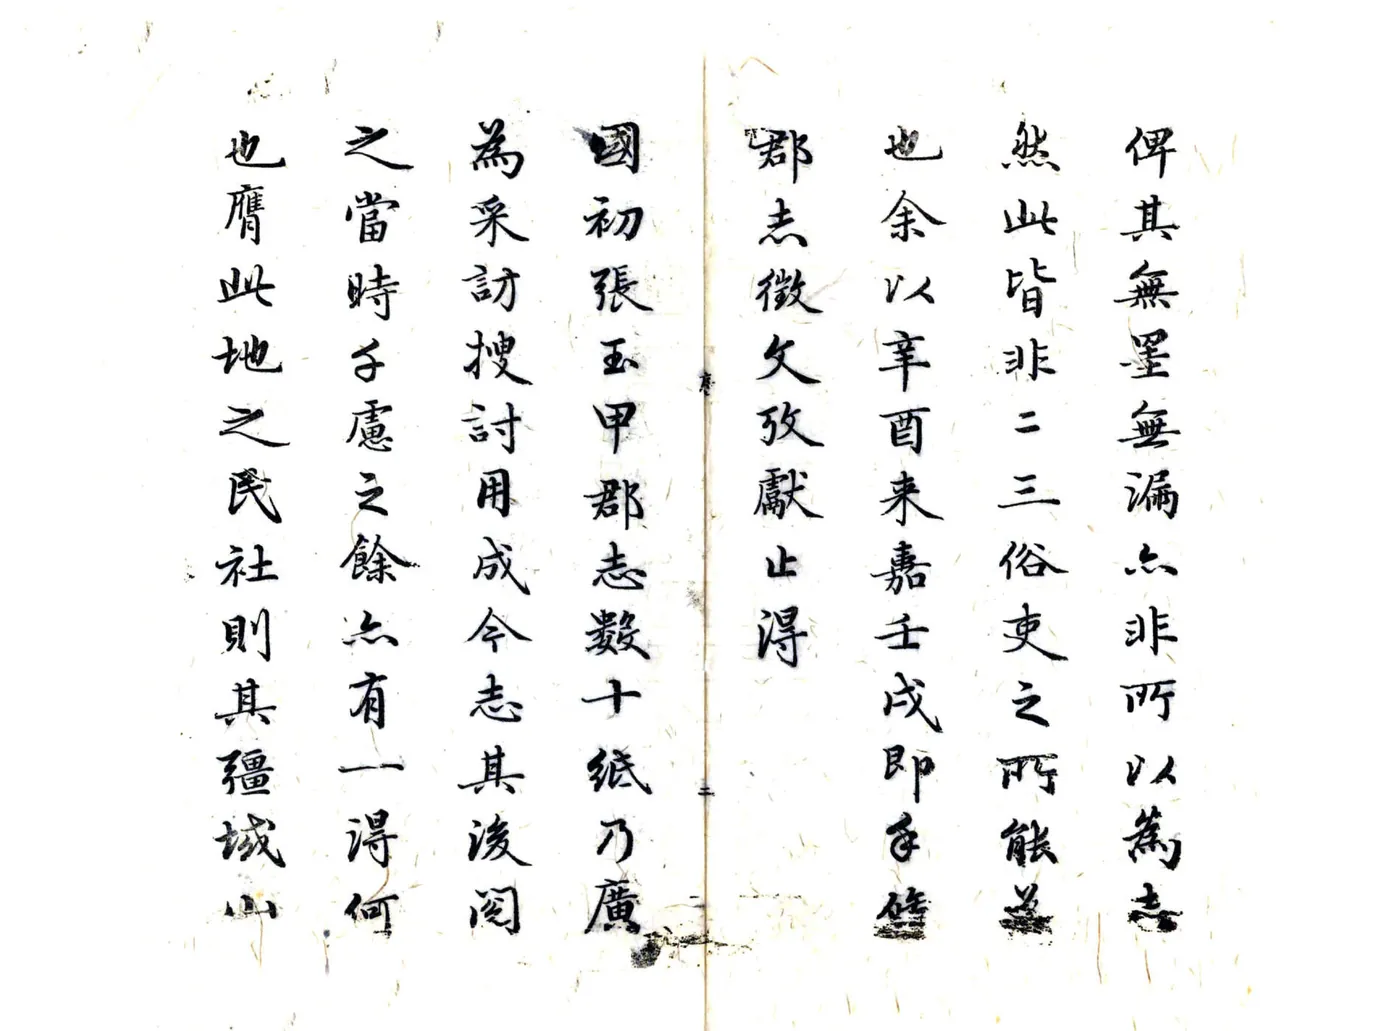 俾其無墨無漏亦非所以為志
然此皆非二三俗吏之所能益
也余以辛酉来嘉壬戌即手
郡志徵文攷獻止得
序
二
國初張玉甲郡志數十紙乃廣
為采訪搜討用成今志其後閱
之當時千慮之餘亦有一得何
也膺此地之民社則其疆域山